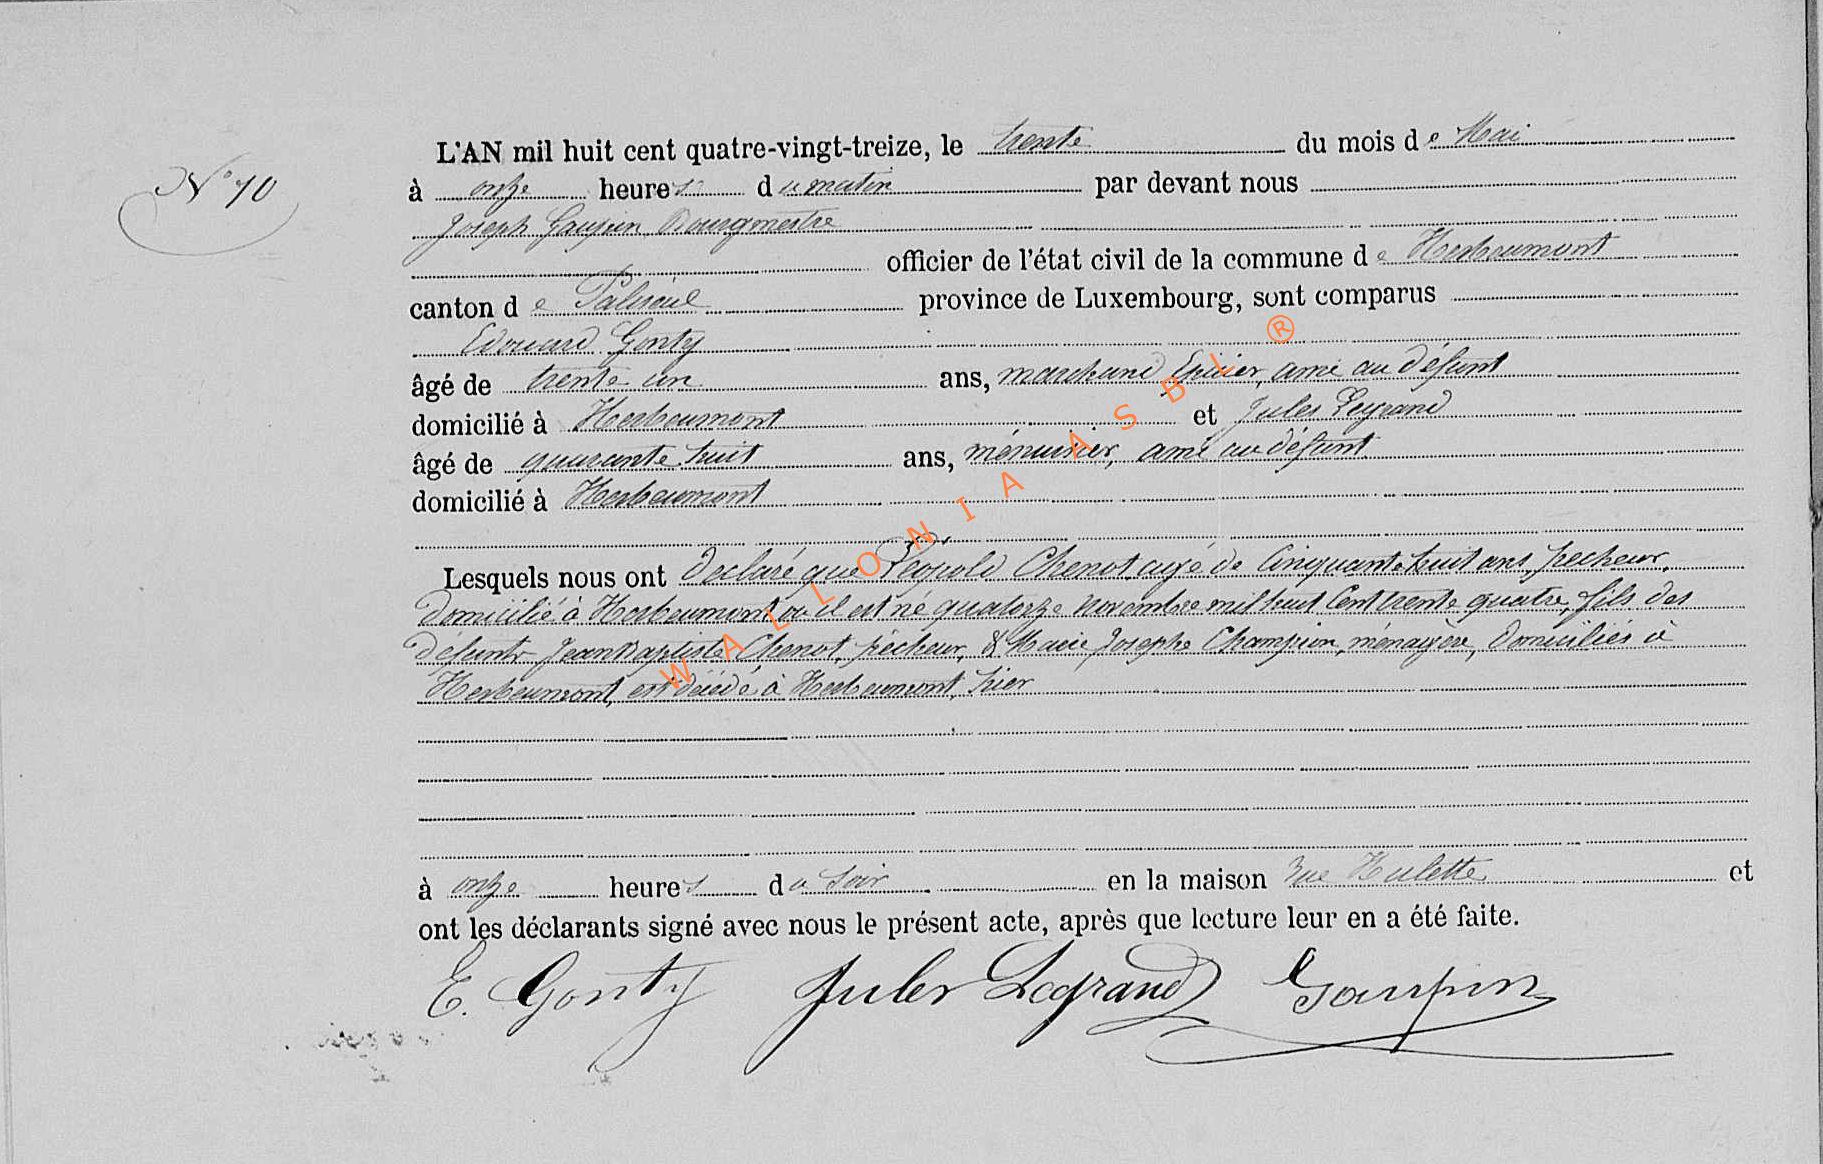 N° 10
L'AN mil huit cent quatre-vingt-treize, le trente du mois de Mai
à onze heures du matin par devant nous
Joseph Gaupin Bourgmestre
officier de l'état civil de la commune de Herbeumont
canton de Paliseul province de Luxembourg, sont comparus
Edouard Gonty
âgé de trente un ans, marchand Epicier, ami au défunt
domicilié à Herbeumont et Jules Legrand
âgé de quarante huit ans, ménuisier, ami au défunt
domicilié à Herbeumont
Lesquels nous ont déclaré que Léopold Chenot, agé de Cinquante huit ans, pécheur,
domicilié à Herbeumont où il est né quatorze novembre mil huit Cent trente quatre, fils des
défunts Jean Baptiste Chenot, pécheur, & Marie Josephe Champion, ménagère, domiciliés à
Herbeumont, est décédé à Herbeumont, hier
à onze heures du soir en la maison rue Hulette et
ont les déclarants signé avec nous le présent acte, après que lecture leur en a été faite.
E. Gonty Jules Legrand Gaupin
WALLONIA ASBL ®